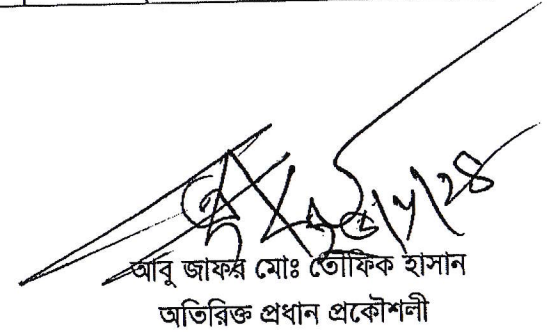 আবু জাফর মোঃ তৌফিক হাসান
অতিরিক্ত প্রধান প্রকৌশলী